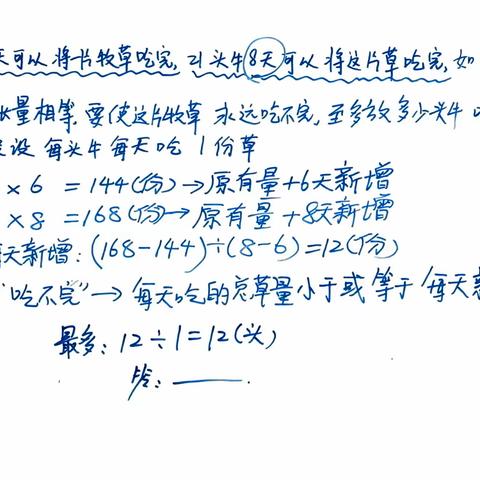 天可以将片牧草吃完, 21头牛8天可以将这片草吃完, 如
量相等. 要使这片牧草 永远吃不完, 至多放多少头牛
设 每头牛每天吃 1份草
×6 =144(份)→原有量+6天新增
×8 =168(份)→原有量+8天新增
天新增:(168-144)÷(8-6)=12(份)
"吃不完"→每天吃的总草量小于或等于每天
最多: 12÷1=12(头)
答: